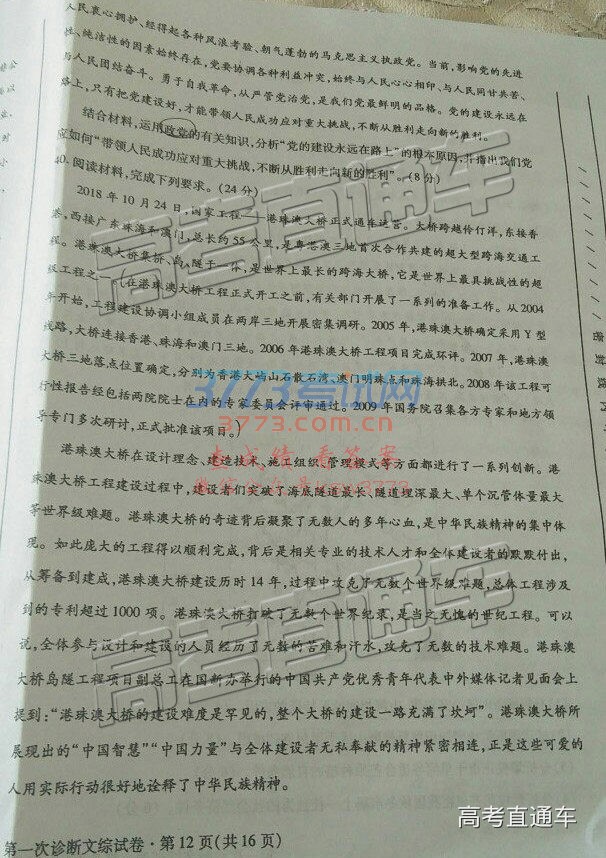 人民衷心拥护、经得起各种风浪考验、朝气蓬勃的马克思主义执政党。当前,影响党的先进
性、纯洁性的因素始终存在,党要协调各种利益冲突,始终与人民心心相印、与人民同甘共苦、
与人民团结奋斗。勇于自我革命,从严管党治党,是我们党最鲜明的品格。党的建设永远在
路上,只有把党建设好,才能带领人民成功应对重大挑战,不断从胜利走向新的胜利。
结合材料,运用政党的有关知识,分析“党的建设永远在路上”的根本原因,并指出我们党
应如何“带领人民成功应对重大挑战,不断从胜利走向新的胜利”。(8 分)
40. 阅读材料,完成下列要求。(24 分)
2018 年 10 月 24 日,国家工程——港珠澳大桥正式通车运营。大桥跨越伶仃洋,东接香
港,西接广东珠海和澳门,总长约 55 公里,是粤港澳三地首次合作共建的超大型跨海交通工
程。港珠澳大桥集桥、岛、隧于一体,是世界上最长的跨海大桥,它是世界上最具挑战性的超
级工程之一。(在港珠澳大桥工程正式开工之前,有关部门开展了一系列的准备工作。从 2004
年开始,工程建设协调小组成员在两岸三地开展密集调研。2005 年,港珠澳大桥确定采用 Y 型
线路,大桥连接香港、珠海和澳门三地。2006 年港珠澳大桥工程项目完成环评。2007 年,港珠澳
大桥三地落点位置确定,分别为香港大屿山石散石湾、澳门明珠点和珠海拱北。2008 年该工程可
行性报告经包括两院院士在内的专家委员会评审通过。2009 年国务院召集各方专家和地方领
导专门多次研讨,正式批准该项目。)
港珠澳大桥在设计理念、建造技术、施工组织、管理模式等方面都进行了一系列创新。港
珠澳大桥工程建设过程中,建设者们突破了海底隧道最长、隧道埋深最大、单个沉管体量最大
等世界级难题。港珠澳大桥的奇迹背后凝聚了无数人的多年心血,是中华民族精神的集中体
现。如此庞大的工程得以顺利完成,背后是相关专业的技术人才和全体建设者的默默付出,
从筹备到建成,港珠澳大桥建设历时 14 年,过程中攻克了无数个世界级难题,总体工程涉及
到的专利超过 1000 项。港珠澳大桥打破了无数个世界纪录,是当之无愧的世纪工程。可以
说,全体参与设计和建设的人员经历了无数的苦难和汗水,攻克了无数的技术难题。港珠澳
大桥岛隧工程项目副总工在国新办举行的中国共产党优秀青年代表中外媒体记者见面会上
提到:“港珠澳大桥的建设难度是罕见的,整个大桥的建设一路充满了坎坷”。港珠澳大桥所
展现出的“中国智慧”“中国力量”与全体建设者无私奉献的精神紧密相连,正是这些可爱的
人用实际行动很好地诠释了中华民族精神。
第一次诊断文综试卷·第 12 页(共 16 页)
高考直通车
高考直通车
高考直通车
3773考试网
3773.com.cn
查成绩 看答案